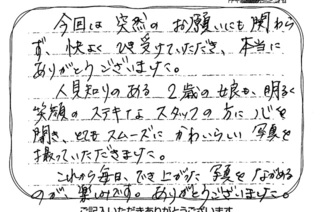 今回は突然のお願いにも関わら
ず、快よくひき受けていただき、本当に
ありがとうございました。
人見知りのある2歳の娘も、明るく
笑顔のステキなスタッフの方に心を
開き、とてもスムーズにかわいらしい写真を
撮っていただきました。
これから毎日、ひき上がった写真をながめる
のが、楽しみです。ありがとうございました。
ご記入いただきありがとうございます